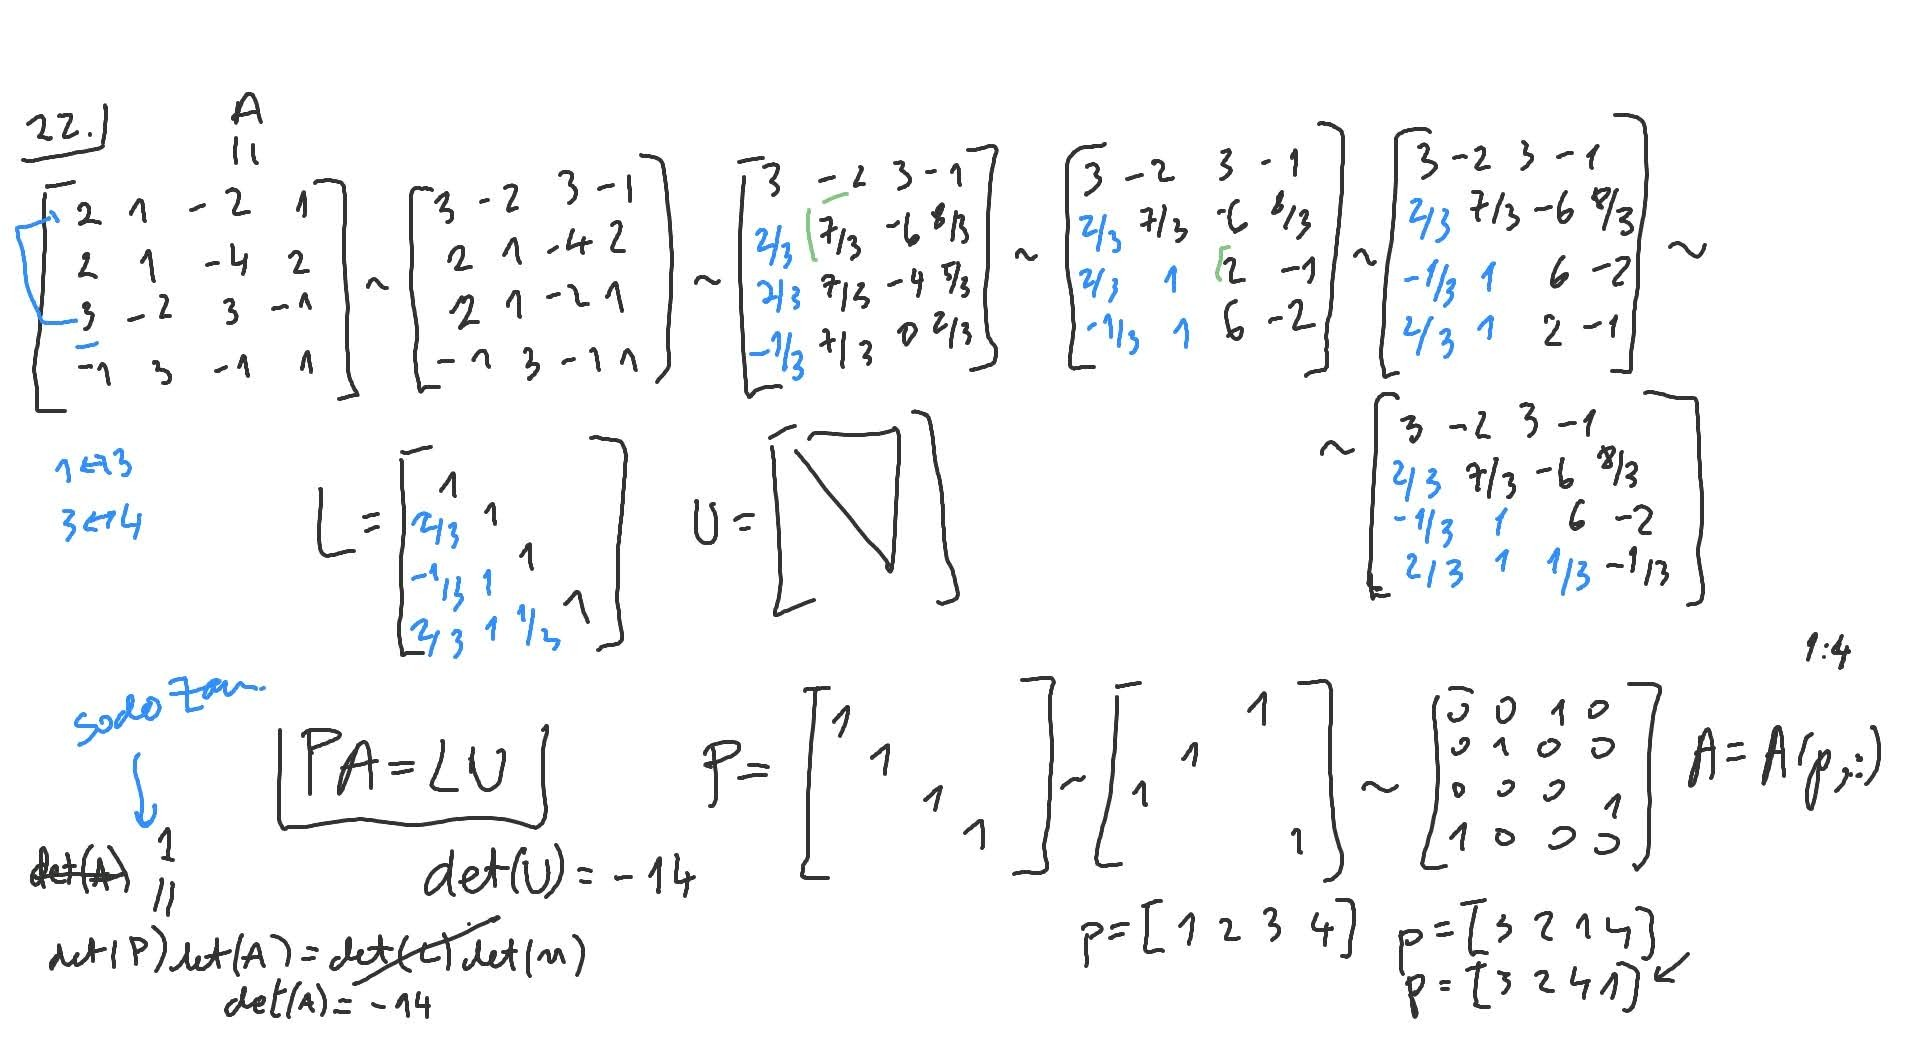 22.)
A
||
[2 1 -2 1; 2 1 -4 2; 3 -2 3 -1; -1 3 -1 1] ~ [3 -2 3 -1; 2 1 -4 2; 2 1 -2 1; -1 3 -1 1] ~ [3 -2 3 -1; 2/3 7/3 -6 8/3; 2/3 7/3 -4 5/3; -1/3 7/3 0 2/3] ~ [3 -2 3 -1; 2/3 7/3 -6 8/3; 2/3 1 2 -1; -1/3 1 6 -2] ~ [3 -2 3 -1; 2/3 7/3 -6 8/3; -1/3 1 6 -2; 2/3 1 2 -1] ~
~ [3 -2 3 -1; 2/3 7/3 -6 8/3; -1/3 1 6 -2; 2/3 1 1/3 -1/3]
1↔3
3↔4
L = [1; 2/3 1; -1/3 1 1; 2/3 1 1/3 1]
U = [ ]
1:4
sodo zam.
PA = LU
P = [1; 1; 1; 1] ~ [1; 1; 1; 1] ~ [0 0 1 0; 0 1 0 0; 0 0 0 1; 1 0 0 0] A = A(p,:)
det(A) 1
||
det(U) = -14
det(P) det(A) = det(L) det(u)
det(A) = -14
p = [1 2 3 4] p = [3 2 1 4]
p = [3 2 4 1] ↙